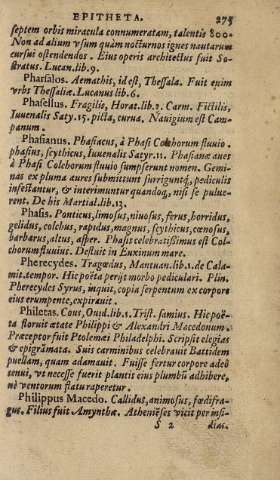 EPITHETA. 275
septem orbis miracula connumeratam, talentis 800.
Non ad alium vsum quàm nocturnos ignes nautarum
cursui ostendendos. Eius operis architectus fuit So-
stratus. Lucan.lib.9.
Pharsalos. Aemathis, id est, Thessala. Fuit enim
vrbs Thessaliæ. Lucanus lib.6.
Phasellus. Fragilis, Horat.lib.7. Carm. Fictilis,
Iuuenalis Saty.15. picta, curua, Nauigium est Cam-
panum.
Phasianus. Phasiacus, à Phasi Colchorum fluuio.
phasius, scythicus, Iuuenalis Satyr.11. Phasianæ aues
à Phasi Colchorum fluuio sumpserunt nomen. Gemi-
nas ex pluma aures submittunt surriguntq́, pediculis
infestantur, & interimuntur quandoq, nisi se pulue-
rent. De his Martial.lib.13.
Phasis. Ponticus, limosus, niuosus, ferus, horridus,
gelidus, colchus, rapidus, magnus, scythicus, cœnosus,
barbarus, altus, asper. Phasis celebratissimus est Col-
chorum fluuius. Defluit in Euxinum mare.
Pherecydes. Tragœdus, Mantuan.lib.1.de Cala-
mit.tempor. Hic poëta perijt morbo pediculari. Plin.
Pherecydes Syrus, inquit, copia serpentum ex corpore
eius erumpente, expirauit.
Philetas. Cous, Ouid.lib.1.Trist. samius. Hic poë-
ta floruit ætate Philippi & Alexandri Macedonum.
Præceptor fuit Ptolemæi Philadelphi. Scripsit elegias
& epigrāmata. Suis carminibus celebrauit Battidem
puellam, quam adamauit. Fuisse fertur corpore adeò
tenui, vt necesse fuerit plantis eius plumbũ adhibere,
nè ventorum flatu raperetur.
Philippus Macedo. Callidus, animosus, fœdifra-
gus. Filius fuit Amynthæ. Atheniẽses vicit per insi-
S 2 dias.